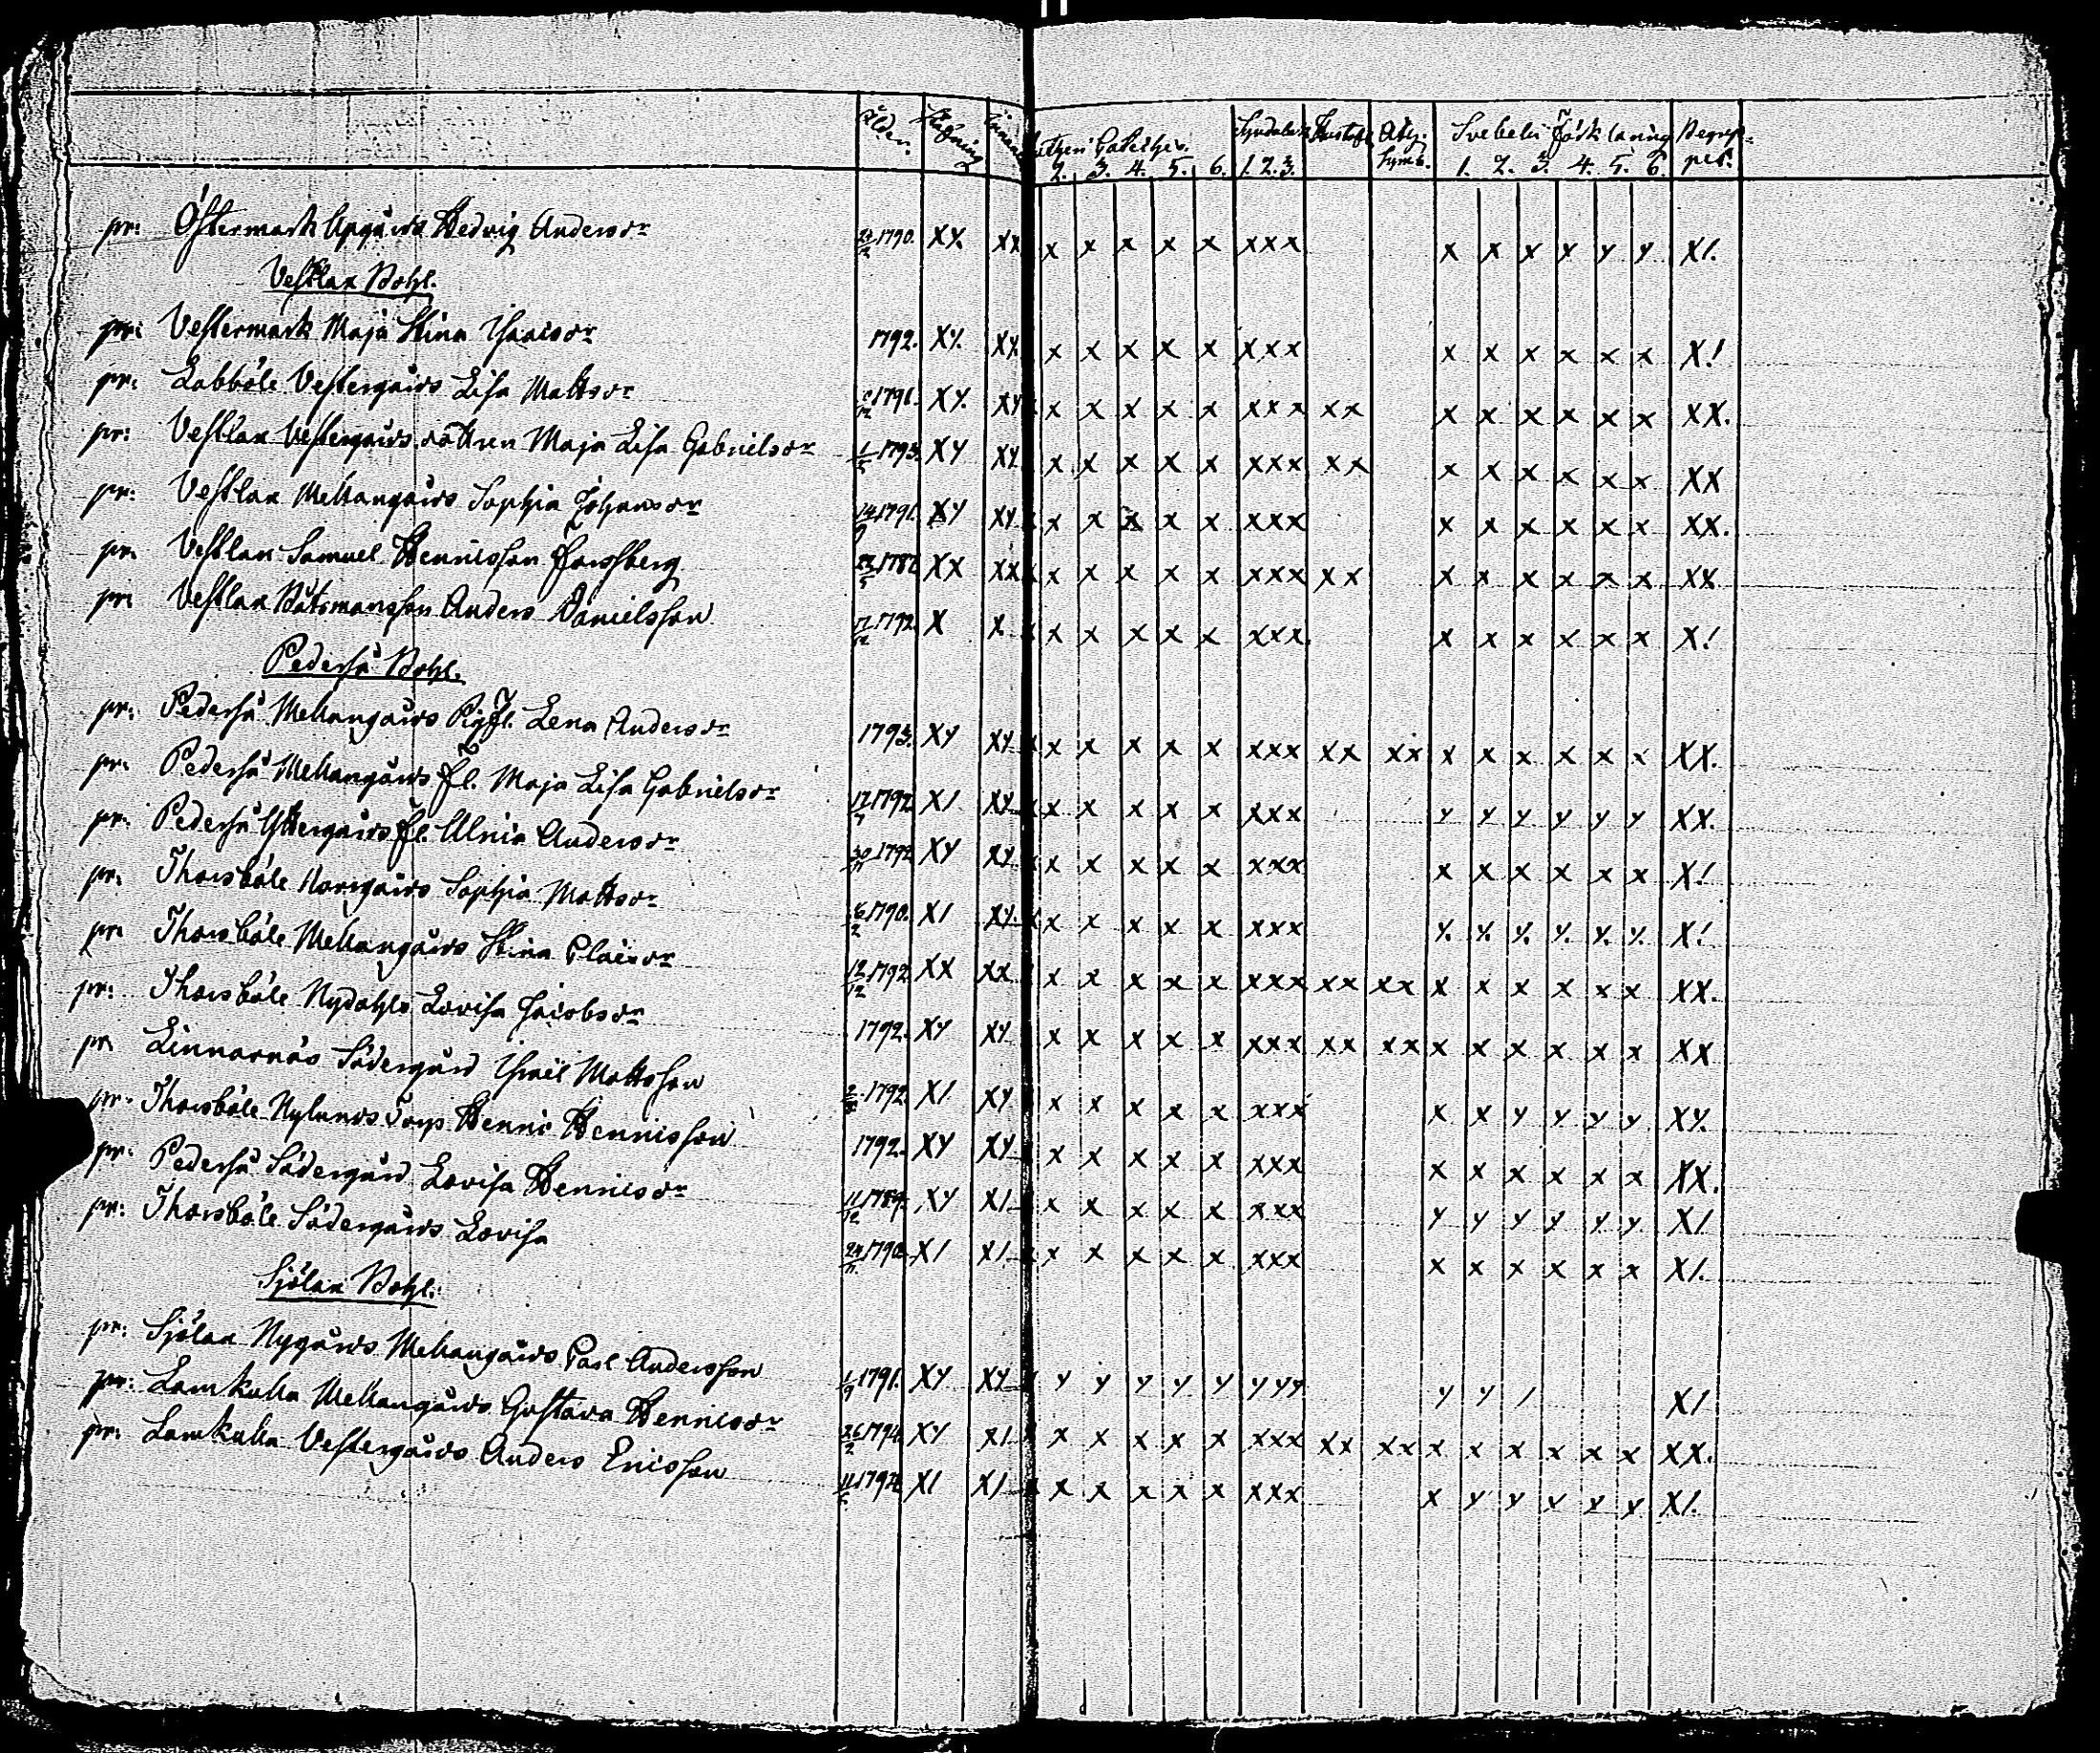 Ålder. Läsning Innan Lutheri Cateches. Syndabek. Hustafl. Atha. Symb. Svebelii Förklaring Begrep-
2. 3. 4. 5. 6. 1. 2. 3. 1. 2. 3. 4. 5. 6. pet.
pr: Östermark Upgårds Hedvig Andersdr 1790. XY. XX x x x x x xxx x x x y y y X1.
Vestlax Bohl.
pr: Vestermark Maja Stina Isacsdr 1792. XY. XY. x x x x x xxx x x x x x x X!
pr: Labböle Vestergårds Lisa Mattsdr 1791. XY. XY x x x x x xxx xx x x x x x x XX.
pr: Vestlax Vestergårds dottren Maja Lisa Gabrielsdr 1/5 1793. XY XY x x x x x xxx xx x x x x x x XX
pr: Vestlax Mellangårds Sophia Johansdr 14/9 1791. XY XY x x x x x xxx x x x x x x XX.
pr. Vestlax Samuel Hennicsson Forssberg 23/5 178 XX XX x x x x x xxx xx x x x x x x XX
pr. Vestlax Båtsmansson Anders Danielsson 17/12 1792. X X x x x x x xxx. x x x x x x X!
Pederså Bohl.
pr: Pederså Mellangårds Pigfl. Lena Andersdr 1793. XY XY x x x x x xxx xx xx x x x x x x XX.
pr. Pederså Mellangårds fl. Maja Lisa Gabrielsdr 1792 X1 XY x x x x x xxx y y y y y y XX.
pr. Pederså Yttergårds fl. Ulrica Andersdr 30/11 1792 XY XY. x x x x x xxx x x x x x x X!
pr. Thorsböle Norrgårds Sophia Mattsdr 6/2 1790. X1 XY. x x x x x xxx y. y. y. y. y. y. X!
pr. Thorsböle Mellangårds Stina Claisdr 12/12 1792 XX XX x x x x x xxx xx xx x x x x x x XX.
pr: Thorsböle Nydahls Lovisa Jacobsdr 1792. XY XY x x x x x xxx xx xx x x x x x x XX
pr. Linnarnäs Södergård Israël Mattsson 1792. X1 XY x x x x x xxx x x y y y y XY.
pr. Thorsböle Nylunds Torp Henric Hennicsson 1792. XY XY x x x x x xxx x x x x x x XX.
pr. Pederså Södergård Lovisa Hennicsdr 11/12 1789. XY X1 x x x x x xxx y y y y y y X1
pr: Thorsböle Södergårds Lovisa 24/11 1790 X1 X1. x x x x x xxx x x x x x x X1.
Sjölax Bohl.
pr: Sjölax Nygårds Mellangårds Carl Andersson 1/9 1791. XY XY y y y y y yyy y y / X1
pr: Lamkulla Mellangårds Gustava Hennicsdr 26/2 179 XY X1 x x x x x xxx xx xx x x x x x x XX.
pr. Lamkulla Vestergårds Anders Ericsson 179 X1 X1 x x x x x xxx x y y y y y X1.